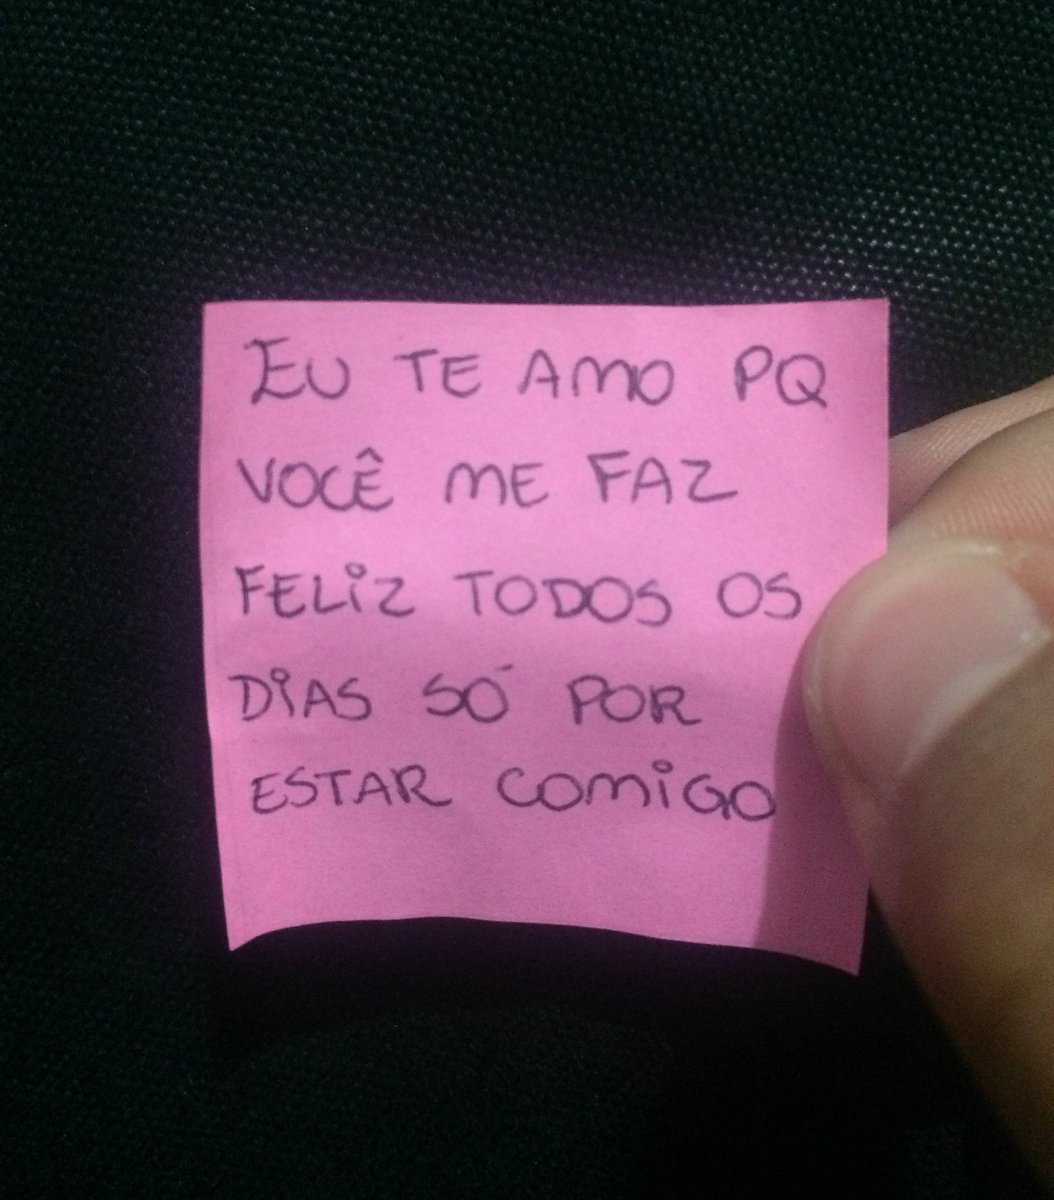 EU TE AMO PQ
VOCÊ ME FAZ
FELIZ TODOS OS
DIAS SÓ POR
ESTAR COMIGO